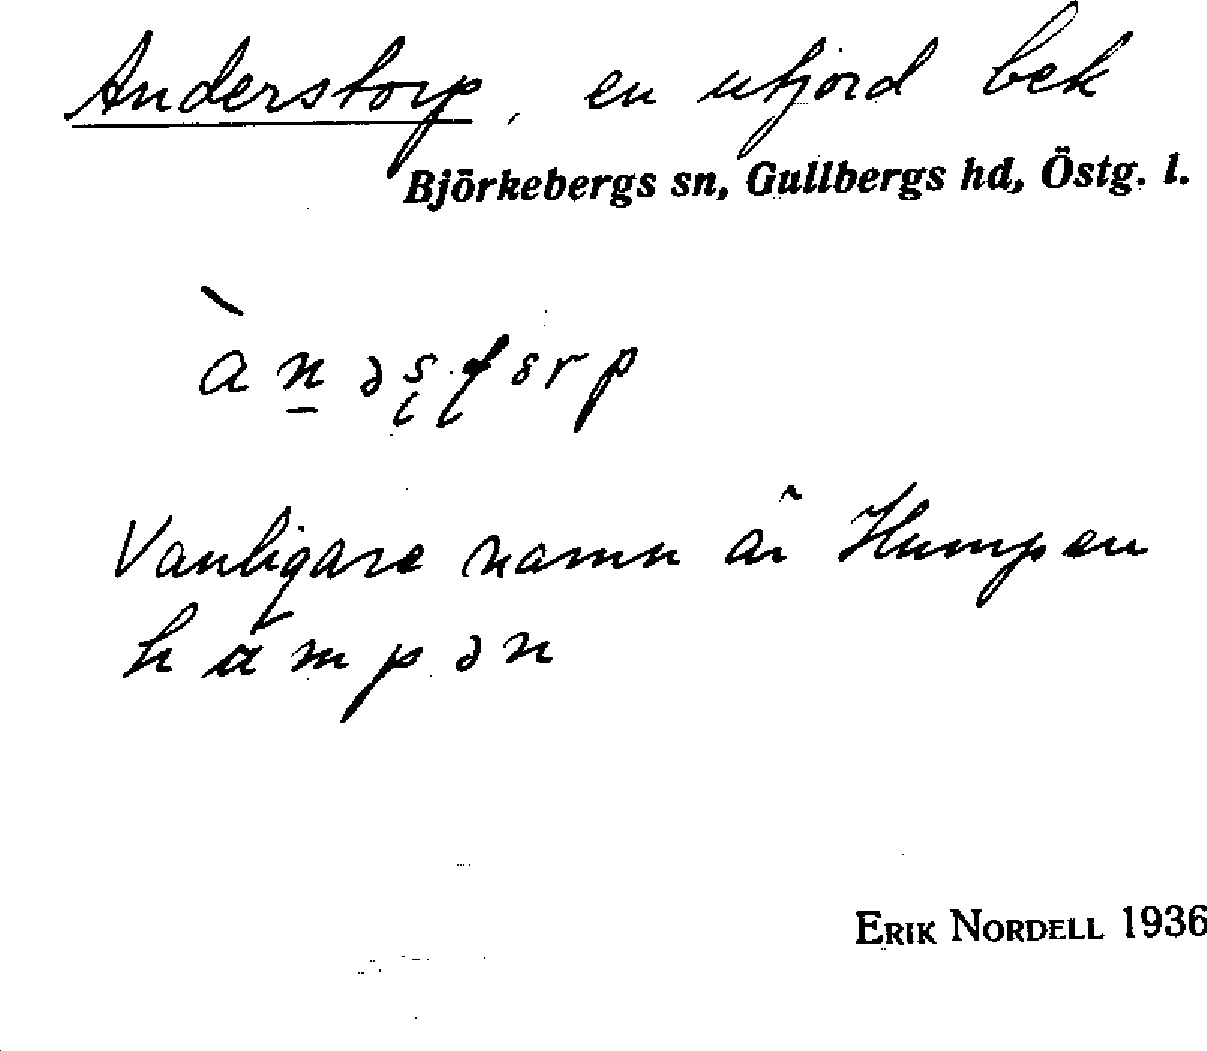 Anderstorp, en utjord bek
Björkebergs sn, Gullbergs hd, Östg. l.
Vanligare namn är Humpen
ERIK NORDELL 1936